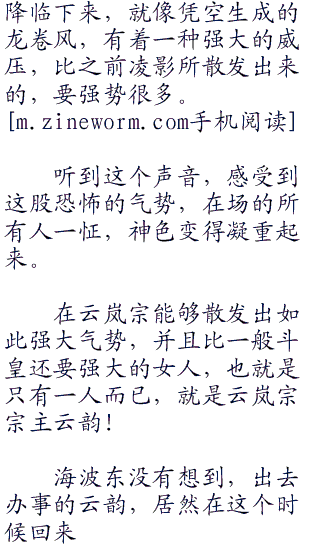 降临下来，就像凭空生成的
龙卷风，有着一种强大的威
压，比之前凌影所散发出来
的，要强势很多。
[m.zineworm.com手机阅读]
听到这个声音，感受到
这股恐怖的气势，在场的所
有人一怔，神色变得凝重起
来。
在云岚宗能够散发出如
此强大气势，并且比一般斗
皇还要强大的女人，也就是
只有一人而已，就是云岚宗
宗主云韵！
海波东没有想到，出去
办事的云韵，居然在这个时
候回来